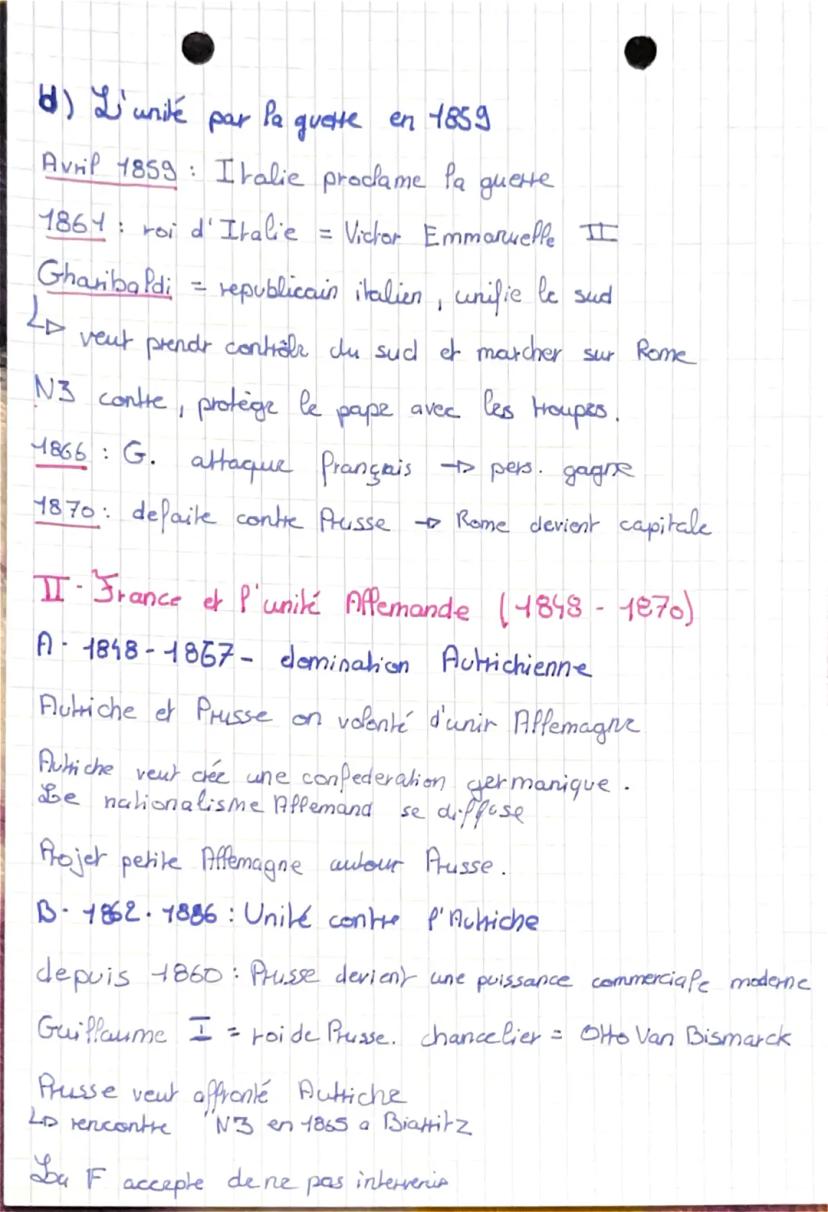 d) L'unité par la guerre en 1859
Avril 1859 : Italie proclame la guerre
1861 : roi d'Italie = Victor Emmanuelle II
Gharibaldi = republicain italien, unifie le sud
↳ veut prendr contrôle du sud et marcher sur Rome
N3 contre, protège le pape avec les troupes.
1866 : G. attaque français → pers. gagne
1870 : defaite contre Prusse → Rome devient capitale
II - France et l'unité Allemande (1848 - 1870)
A - 1848 - 1867 - domination Autrichienne
Autriche et Prusse on volonté d'unir Allemagne
Autriche veut crée une confederation germanique.
Le nationalisme Allemand se diffuse
Projet petite Allemagne autour Prusse.
B - 1862 - 1886 : Unité contre l'Autriche
depuis 1860 : Prusse devient une puissance commerciale moderne
Guillaume I = roi de Prusse. chancelier = Otto Van Bismarck
Prusse veut affronté Autriche
↳ rencontre N3 en 1865 a Biarritz
La F accepte de ne pas intervenir